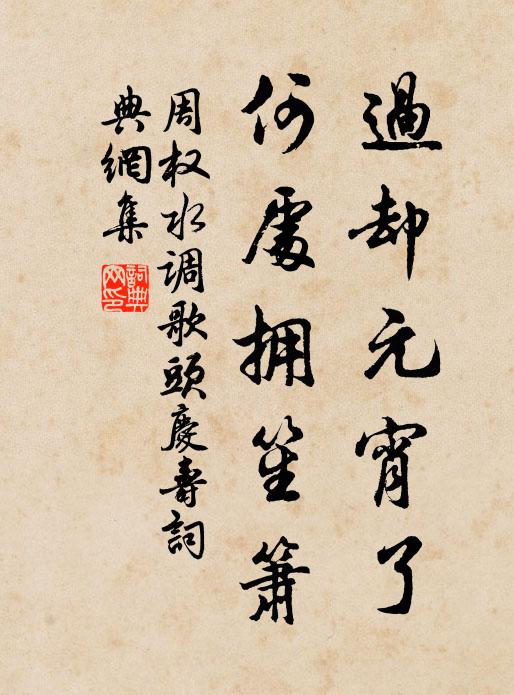 過却元宵了
何處拥笙簫
周权水调歌頭慶壽詞
典網集
詞典
网印